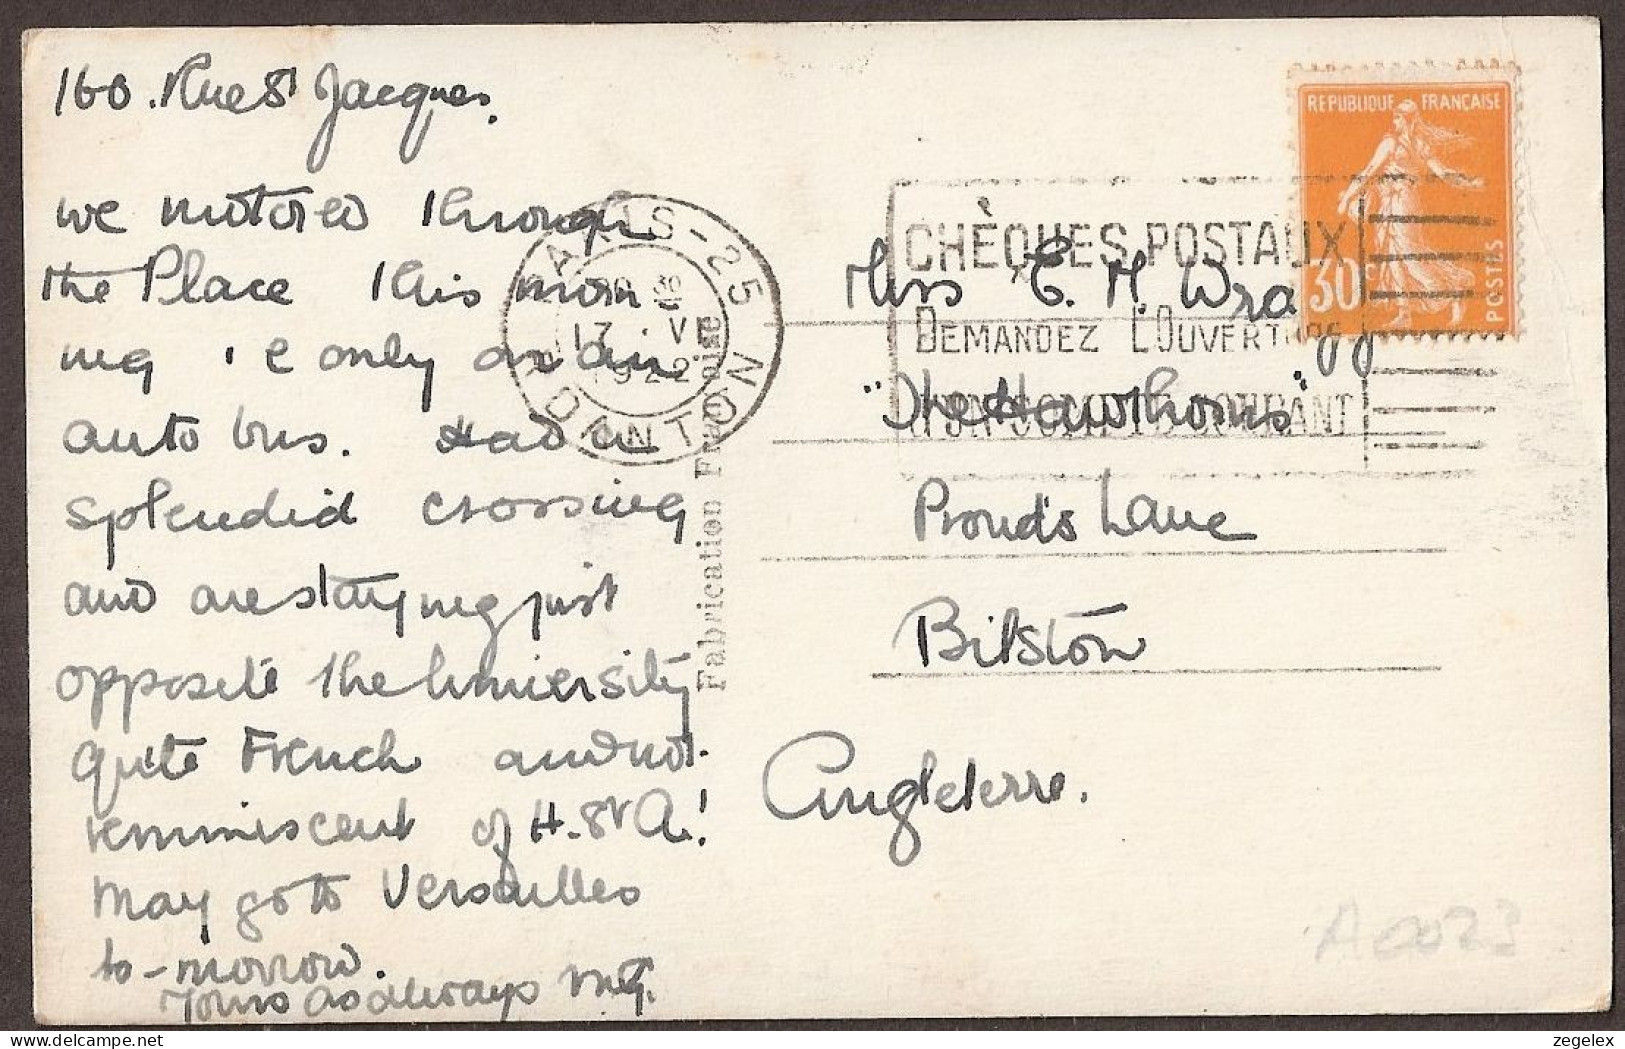 160. Rue St Jacques.
we motored through
the Place this morn
ing i.e only on an
auto bus. Had a
splendid crossing
and are staying just
opposite the University
quite French and not
reminiscent of H. St A.!
May go to Versailles
to-morrow.
Yours as always M.G.
Fabrication Française
PARIS-25
17 · VI
1922
R. DANTON
CHÈQUES POSTAUX
DEMANDEZ L'OUVERTURE
D'UN COMPTE COURANT
REPUBLIQUE FRANÇAISE
30c
POSTES
Miss E. M. Wragg
"The Hawthorns"
Proud's Lane
Bilston
Angleterre.
A0023
zegelex